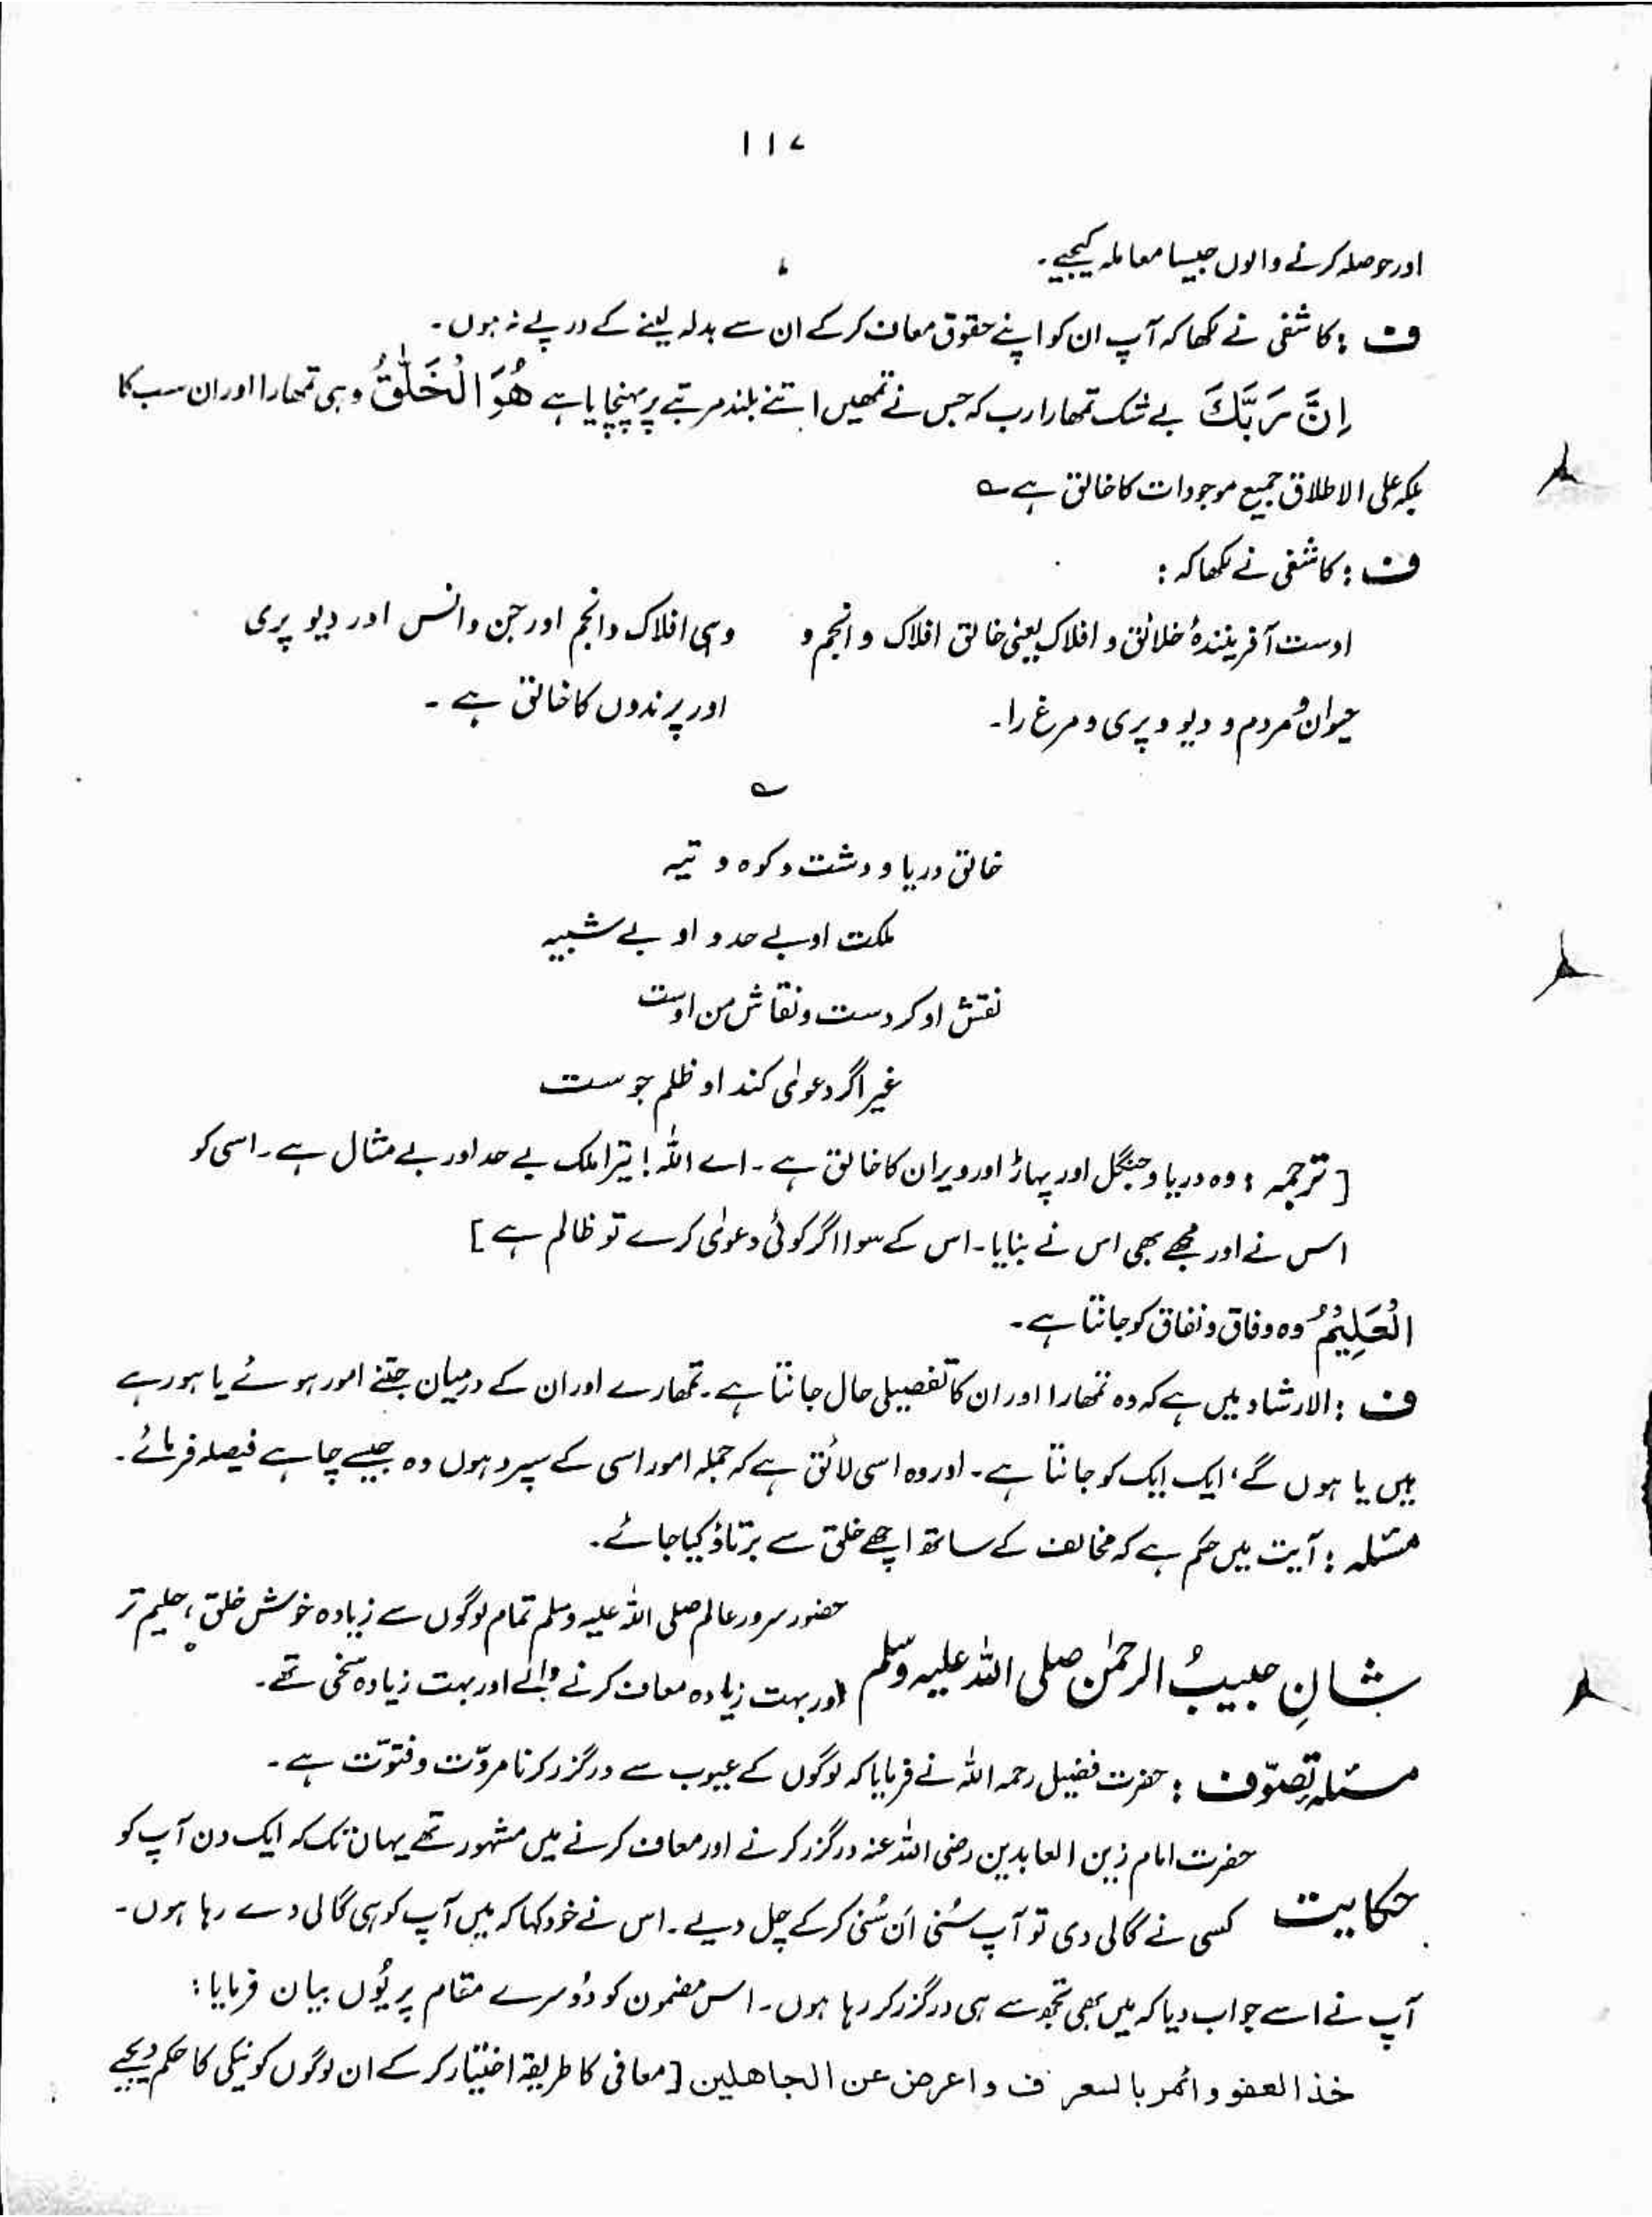 ۱۱۷
اور حوصلہ کرنے والوں جیسا معاملہ کیجیے۔
ف : کاشفی نے لکھا کہ آپ ان کو اپنے حقوق معاف کر کے ان سے بدلہ لینے کے درپے نہ ہوں۔
اِنَّ رَبَّكَ بے شک تمھارا رب کہ جس نے تمھیں اتنے بلند مرتبے پر پہنچایا ہے هُوَ الْخَلّٰقُ وہی تمھارا اور ان سب کا
بلکہ علی الاطلاق جمیع موجودات کا خالق ہے ؎
ف : کاشفی نے لکھا کہ :
اوست آفرینندۂ خلائق و افلاک یعنی خالق افلاک و انجم و
حیوان و مردم و دیو و پری و مرغ را۔
وہی افلاک و انجم اور جن و انس اور دیو پری
اور پرندوں کا خالق ہے ۔
؎
خالق دریا و دشت و کوہ و تیہ
ملکت او بے حد و او بے شبیہ
نقش او کردست و نقاش من اوست
غیر اگر دعوٰی کند او ظلم جوست
[ ترجمہ : وہ دریا و جنگل اور پہاڑ اور ویران کا خالق ہے ۔ اے اللہ! تیرا ملک بے حد اور بے مثال ہے ۔ اسی کو
اس نے اور مجھے بھی اس نے بنایا ۔ اس کے سوا اگر کوئی دعوٰی کرے تو ظالم ہے ]
الْعَلِيْمُ وہ وفاق و نفاق کو جانتا ہے ۔
ف : الارشاد میں ہے کہ وہ تمھارا اور ان کا تفصیلی حال جانتا ہے ۔ تمھارے اور ان کے درمیان جتنے امور ہوئے یا ہو رہے
ہیں یا ہوں گے ، ایک ایک کو جانتا ہے ۔ اور وہ اسی لائق ہے کہ جملہ امور اسی کے سپرد ہوں وہ جیسے چاہے فیصلہ فرمائے ۔
مسئلہ : آیت میں حکم ہے کہ مخالف کے ساتھ اچھے خلق سے برتاؤ کیا جائے ۔
شانِ حبیبُ الرحمٰن صلی اللہ علیہ وسلم حضور سرور عالم صلی اللہ علیہ وسلم تمام لوگوں سے زیادہ خوش خلق ، حلیم تر
اور بہت زیادہ معاف کرنے والے اور بہت زیادہ سخی تھے ۔
مسئلہ تصوّف : حضرت فضیل رحمہ اللہ نے فرمایا کہ لوگوں کے عیوب سے درگزر کرنا مروّت و فتوّت ہے ۔
حکایت حضرت امام زین العابدین رضی اللہ عنہ درگزر کرنے اور معاف کرنے میں مشہور تھے یہاں تک کہ ایک دن آپ کو
کسی نے گالی دی تو آپ سُنی اَن سُنی کر کے چل دیے ۔ اس نے خود کہا کہ میں آپ کو ہی گالی دے رہا ہوں ۔
آپ نے اسے جواب دیا کہ میں بھی تجھ سے ہی درگزر کر رہا ہوں ۔ اس مضمون کو دُوسرے مقام پر یُوں بیان فرمایا :
خذ العفو و ائمر بالمعرف و اعرض عن الجاهلین [ معافی کا طریقہ اختیار کر کے ان لوگوں کو نیکی کا حکم دیجیے